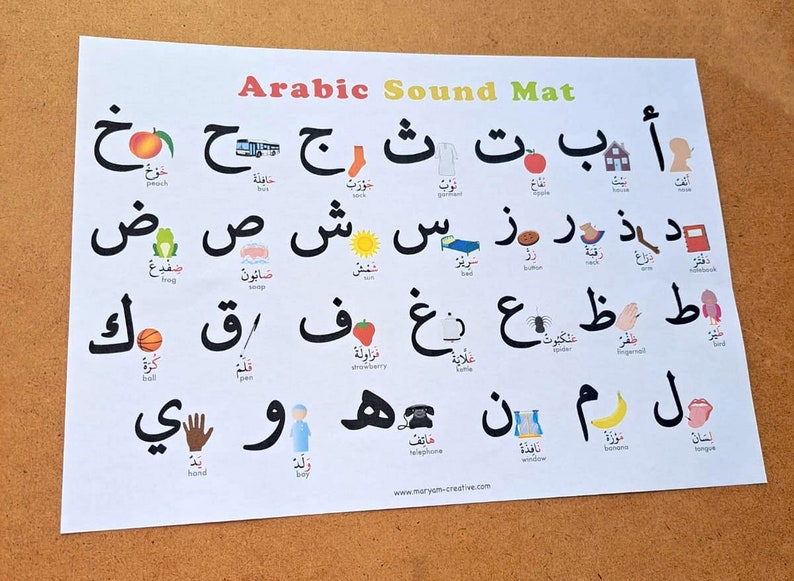 Arabic Sound Mat
أ ب ت ث ج ح خ
أَنْفٌ بَيْتٌ تُفَّاحٌ ثَوْبٌ جَوْرَبٌ حَافِلَةٌ خَوْخٌ
nose house apple garment sock bus peach
د ذ ر ز س ش ص ض
دَفْتَرٌ ذِرَاعٌ رَقَبَةٌ زِرٌّ سَرِيْرٌ شَمْسٌ صَابُونٌ ضِفْدِعٌ
notebook arm neck button bed sun soap frog
ط ظ ع غ ف ق ك
طَيْرٌ ظُفْرٌ عَنْكَبُوتٌ غَلَّايَةٌ فَرَاوِلَةٌ قَلَمٌ كُرَةٌ
bird fingernail spider kettle strawberry pen ball
ل م ن ه و ي
لِسَانٌ مَوْزَةٌ نَافِذَةٌ هَاتِفٌ وَلَدٌ يَدٌ
tongue banana window telephone boy hand
www.maryam-creative.com